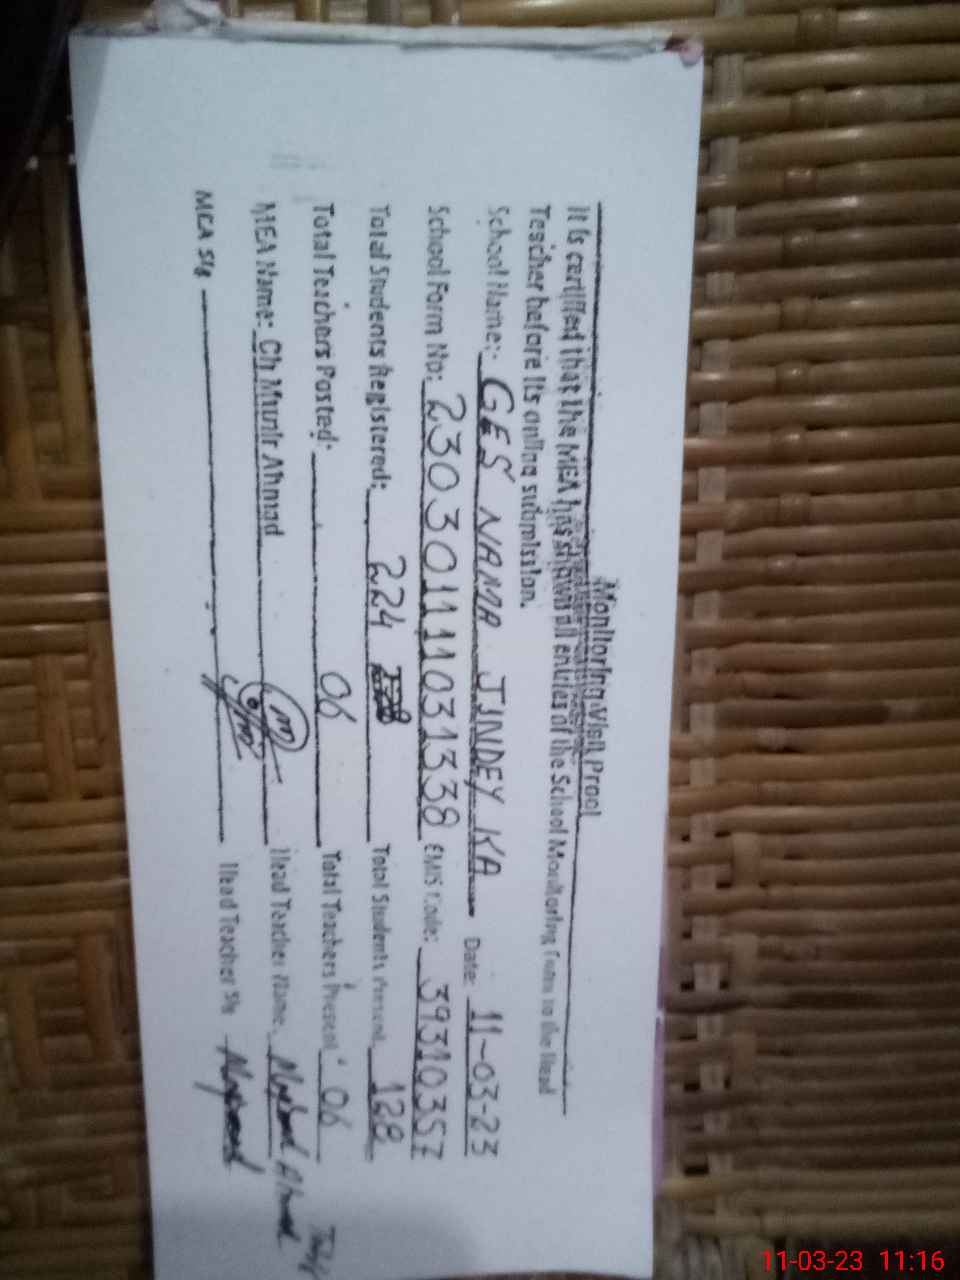 Monitoring Visit Proof
It is certified that the MEA has shown all entries of the School Monitoring Form to the Head
Teacher before its online submission.
School Name: GES NAMA JINDEY KA Date: 11-03-23
School Form No: 23030111031338 EMIS Code: 39310357
Total Students Registered: 224 Total Students Present 128
Total Teachers Posted: 06 Total Teachers Present 06
MEA Name: Ch Munir Ahmad Head Teacher Name Ahmad
MEA Sig Head Teacher Sig
11-03-23 11:16